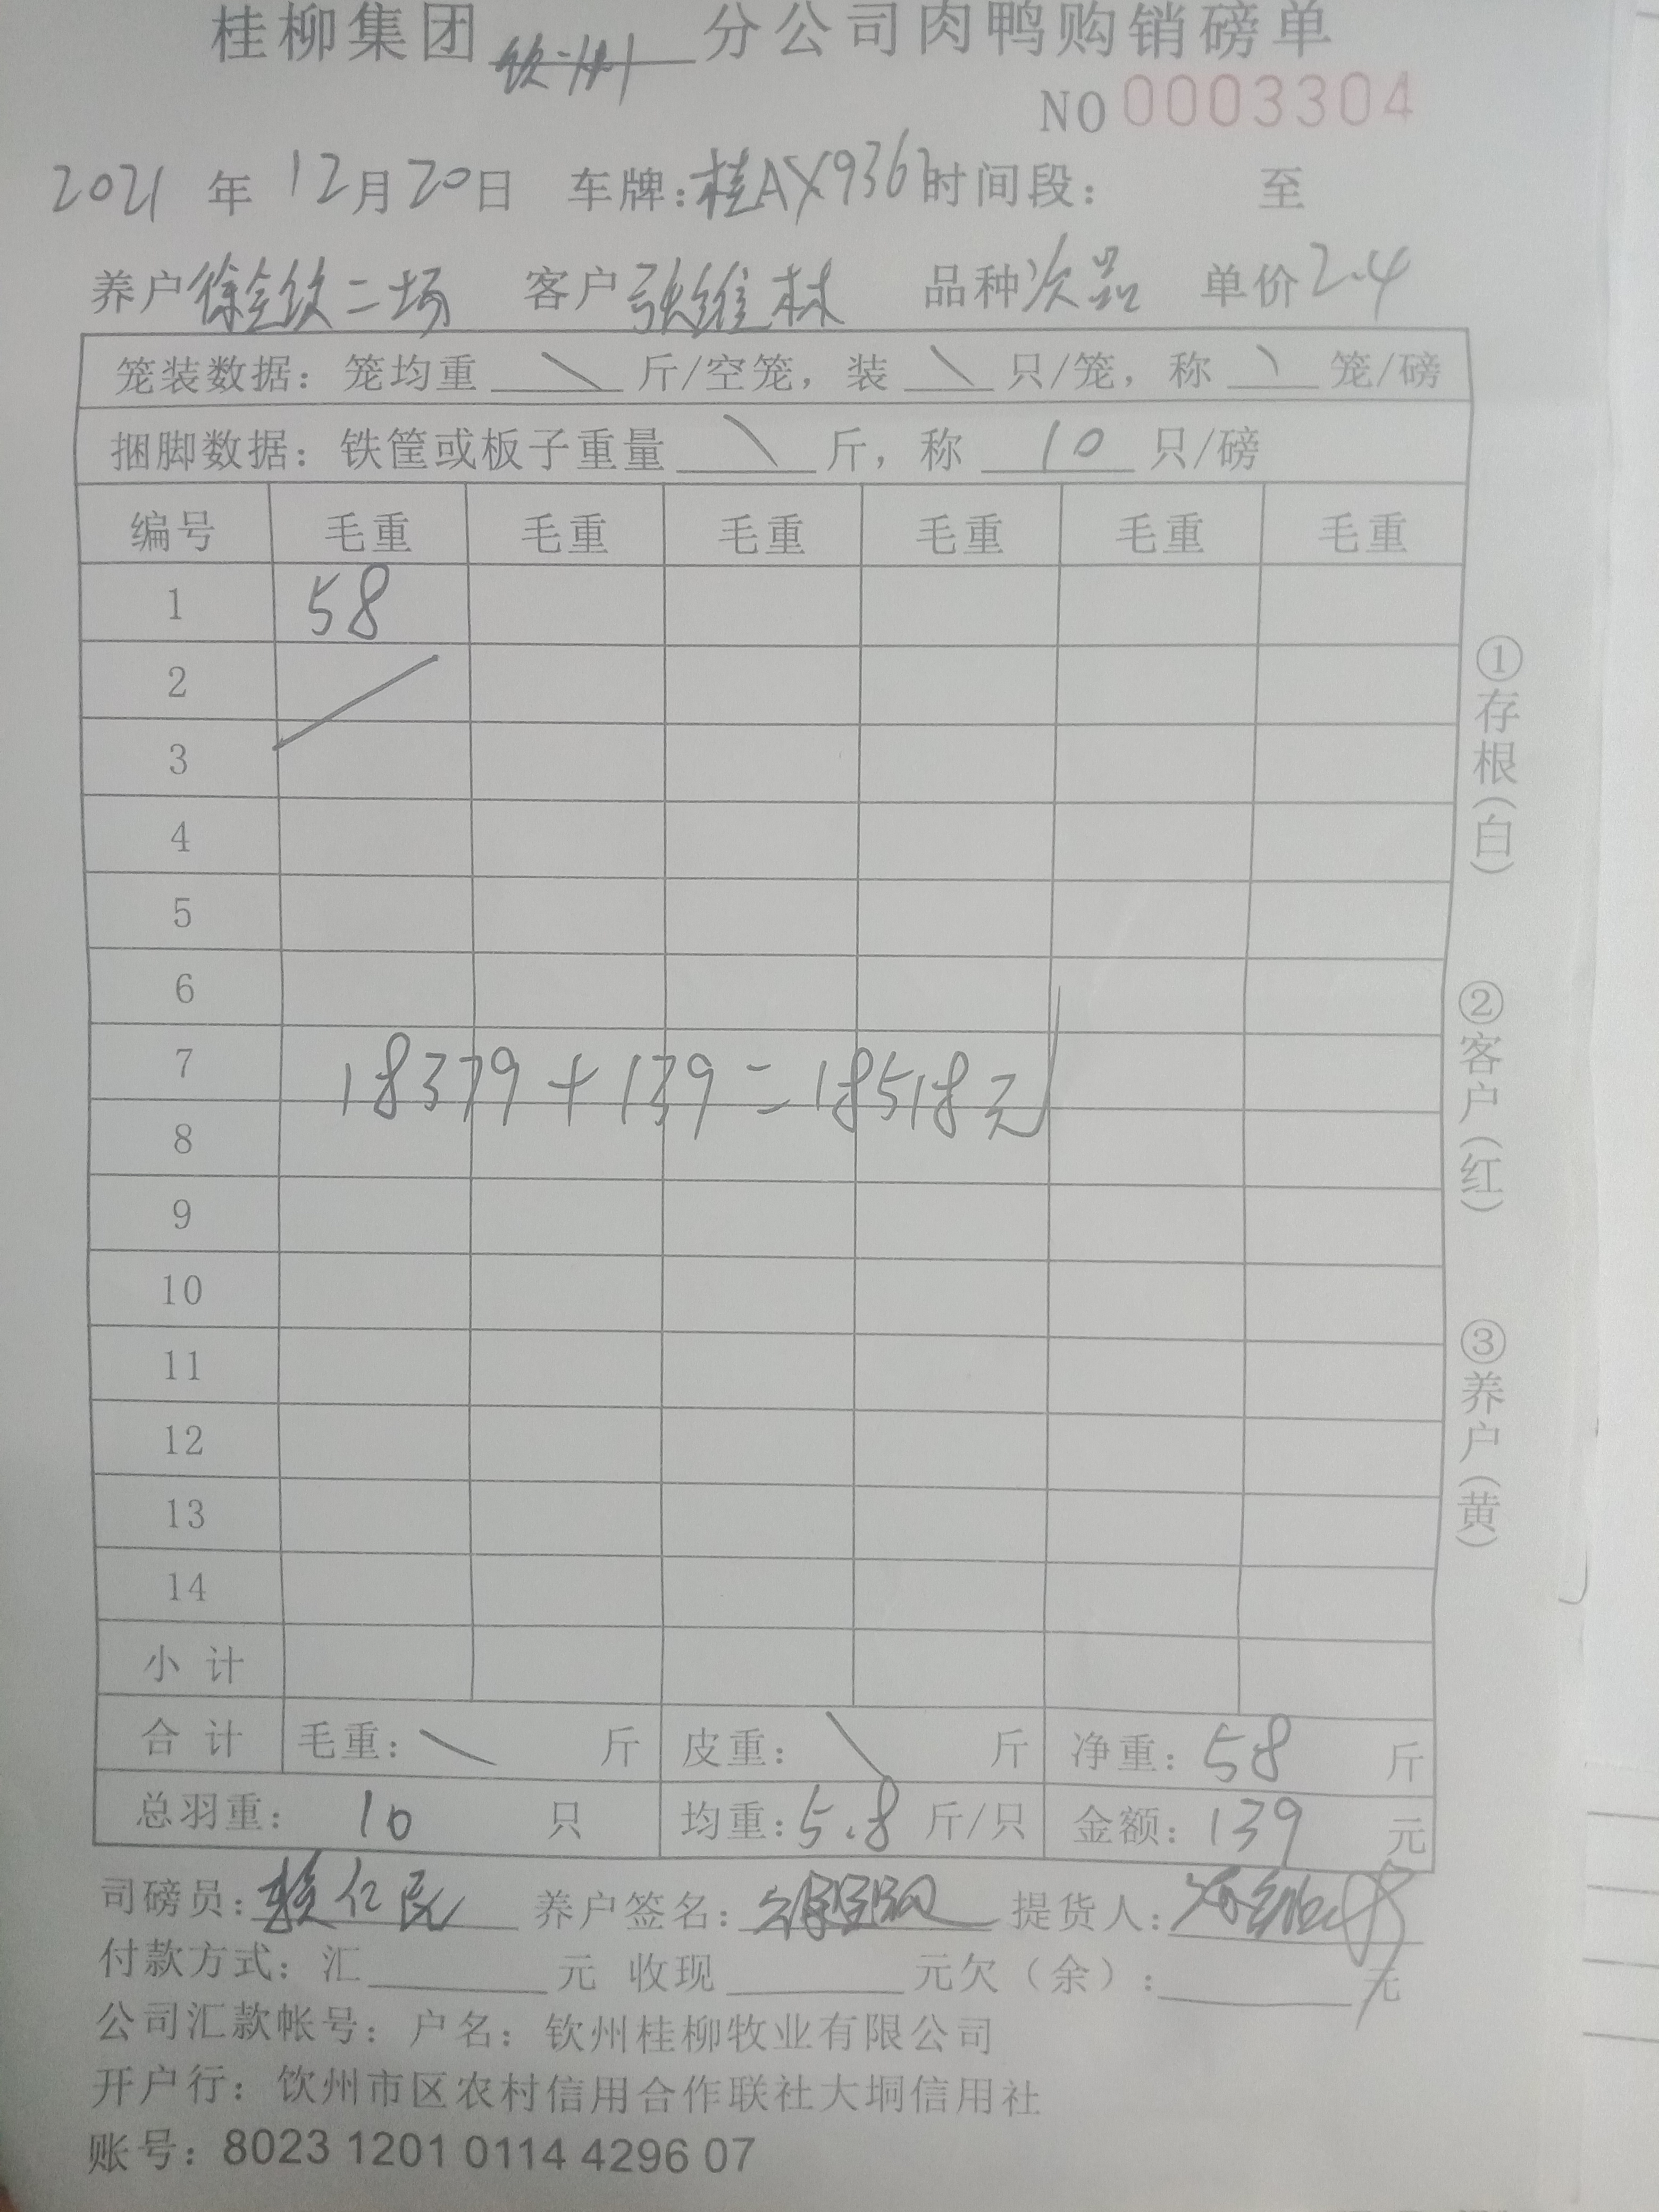 桂柳集团 钦州 分公司肉鸭购销磅单
NO 0003304
2021 年 12月20日 车牌:桂AX936 时间段: 至
养户 徐 钦二场 客户 张维林 品种 次品 单价 2.4
笼装数据: 笼均重 \ 斤/空笼, 装 \ 只/笼, 称 \ 笼/磅
捆脚数据: 铁筐或板子重量 \ 斤, 称 10 只/磅
编号 毛重 毛重 毛重 毛重 毛重 毛重
1 58
2
3
4
5
6
7
18379+139=18518元
8
9
10
11
12
13
14
小 计
合 计 毛重: \ 斤 皮重: \ 斤 净重: 58 斤
总羽重: 10 只 均重: 5.8 斤/只 金额: 139 元
司磅员: 赖仁民 养户签名: 提货人:
付款方式: 汇 元 收现 元欠(余): 元
公司汇款帐号: 户名: 钦州桂柳牧业有限公司
开户行: 钦州市区农村信用合作联社大垌信用社
账号: 8023 1201 0114 4296 07
①存根(白)
②客户(红)
③养户(黄)